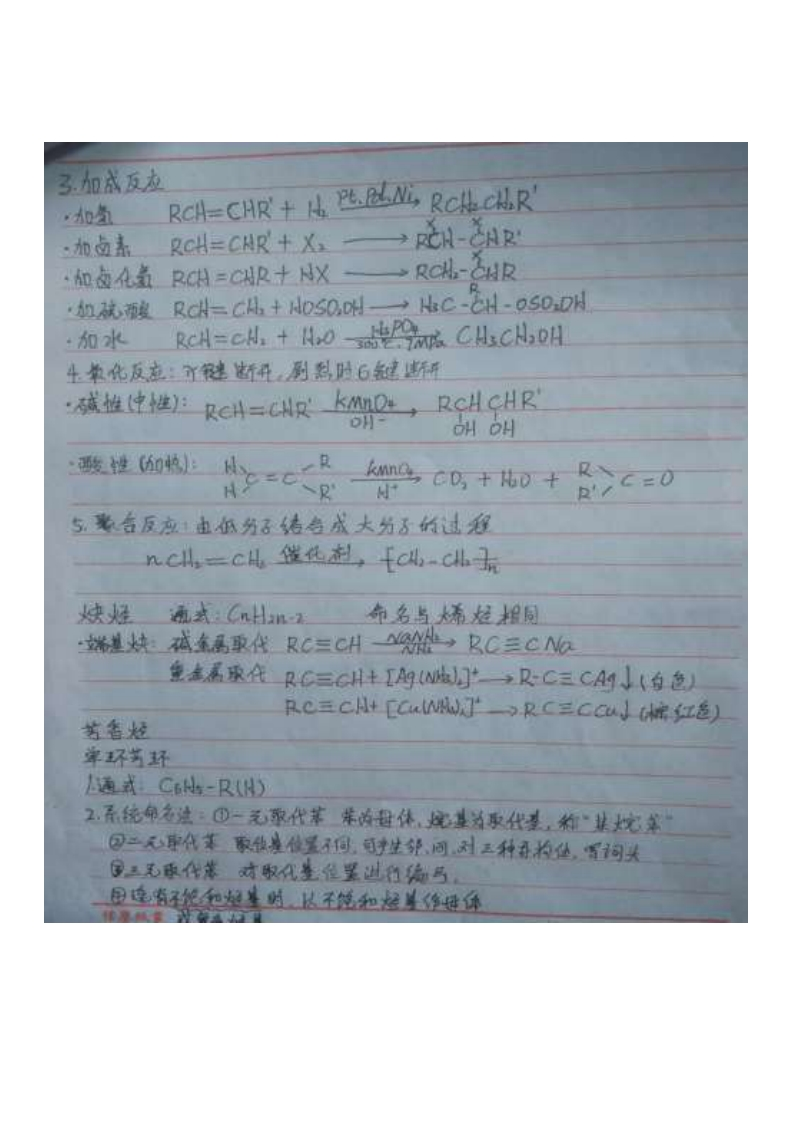 3.加成反应
·加氢 RCH=CHR' + H₂ —Pt.Pd.Ni→ RCH₂CH₂R'
·加卤素 RCH=CHR' + X₂ ⟶ RCH(X)-CH(X)R'
·加卤化氢 RCH=CHR + HX ⟶ RCH₂-CH(X)R
·加硫酸 RCH=CH₂ + HOSO₂OH ⟶ H₃C-CH(R)-OSO₂OH
·加水 RCH=CH₂ + H₂O —H₃PO₄ / 300℃, 7MPa→ CH₃CH₂OH
4.氧化反应:π键断开,剧烈时σ键断开
·碱性(中性): RCH=CHR' —KMnO₄ / OH⁻→ RCH(OH)CH(OH)R'
·酸性(加热): H H C=C R R' —KMnO₄ / H⁺→ CO₂ + H₂O + R R' C=O
5.聚合反应:由低分子结合成大分子的过程
nCH₂=CH₂ —催化剂→ [CH₂-CH₂]n
炔烃 通式:CnH2n-2 命名与烯烃相同
·端基炔: 碱金属取代 RC≡CH —NaNH₂ / NH₃→ RC≡CNa
重金属取代 RC≡CH + [Ag(NH₃)₂]⁺ ⟶ R-C≡CAg↓(白色)
RC≡CH + [Cu(NH₃)₂]⁺ ⟶ RC≡CCu↓(棕红色)
芳香烃
单环芳环
1.通式: C₆H₅-R(H)
2.系统命名法:①一元取代苯 苯为母体,烷基为取代基,称"某烷苯"
②二元取代苯 取代基位置不同,可产生邻,间,对三种异构体,写词头
③三元取代苯 对取代基位置进行编号.
④连有不饱和烃基时,以不饱和烃基作母体